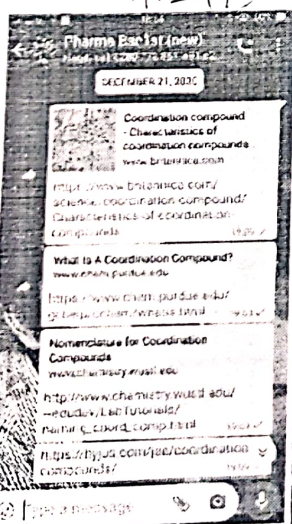 Pharma Ba
(new)
DECEMBER 21, 2020
Coordination compound
- Characteristics of
coordination compounds
www.britannica.com
https://www.britannica.com/
science/coordination-compound/
Characteristics-of-coordination-
compounds
What Is A Coordination Compound?
www.chem.purdue.edu
https://www.chem.purdue.edu/
Nomenclature for Coordination
Compounds
www.chemistry.wustl.edu
http://www.chemistry.wustl.edu/
~edudev/LabTutorials/
naming_coord_comp.html
https://byjus.com/jee/coordination-
compounds/
Type a message